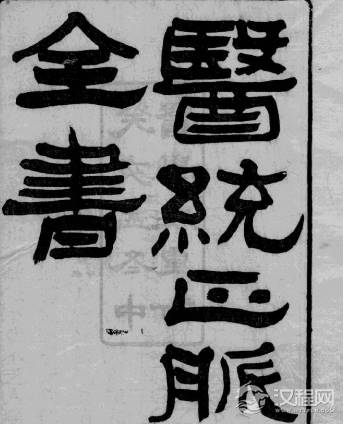 醫統正脈
全書
汉程网